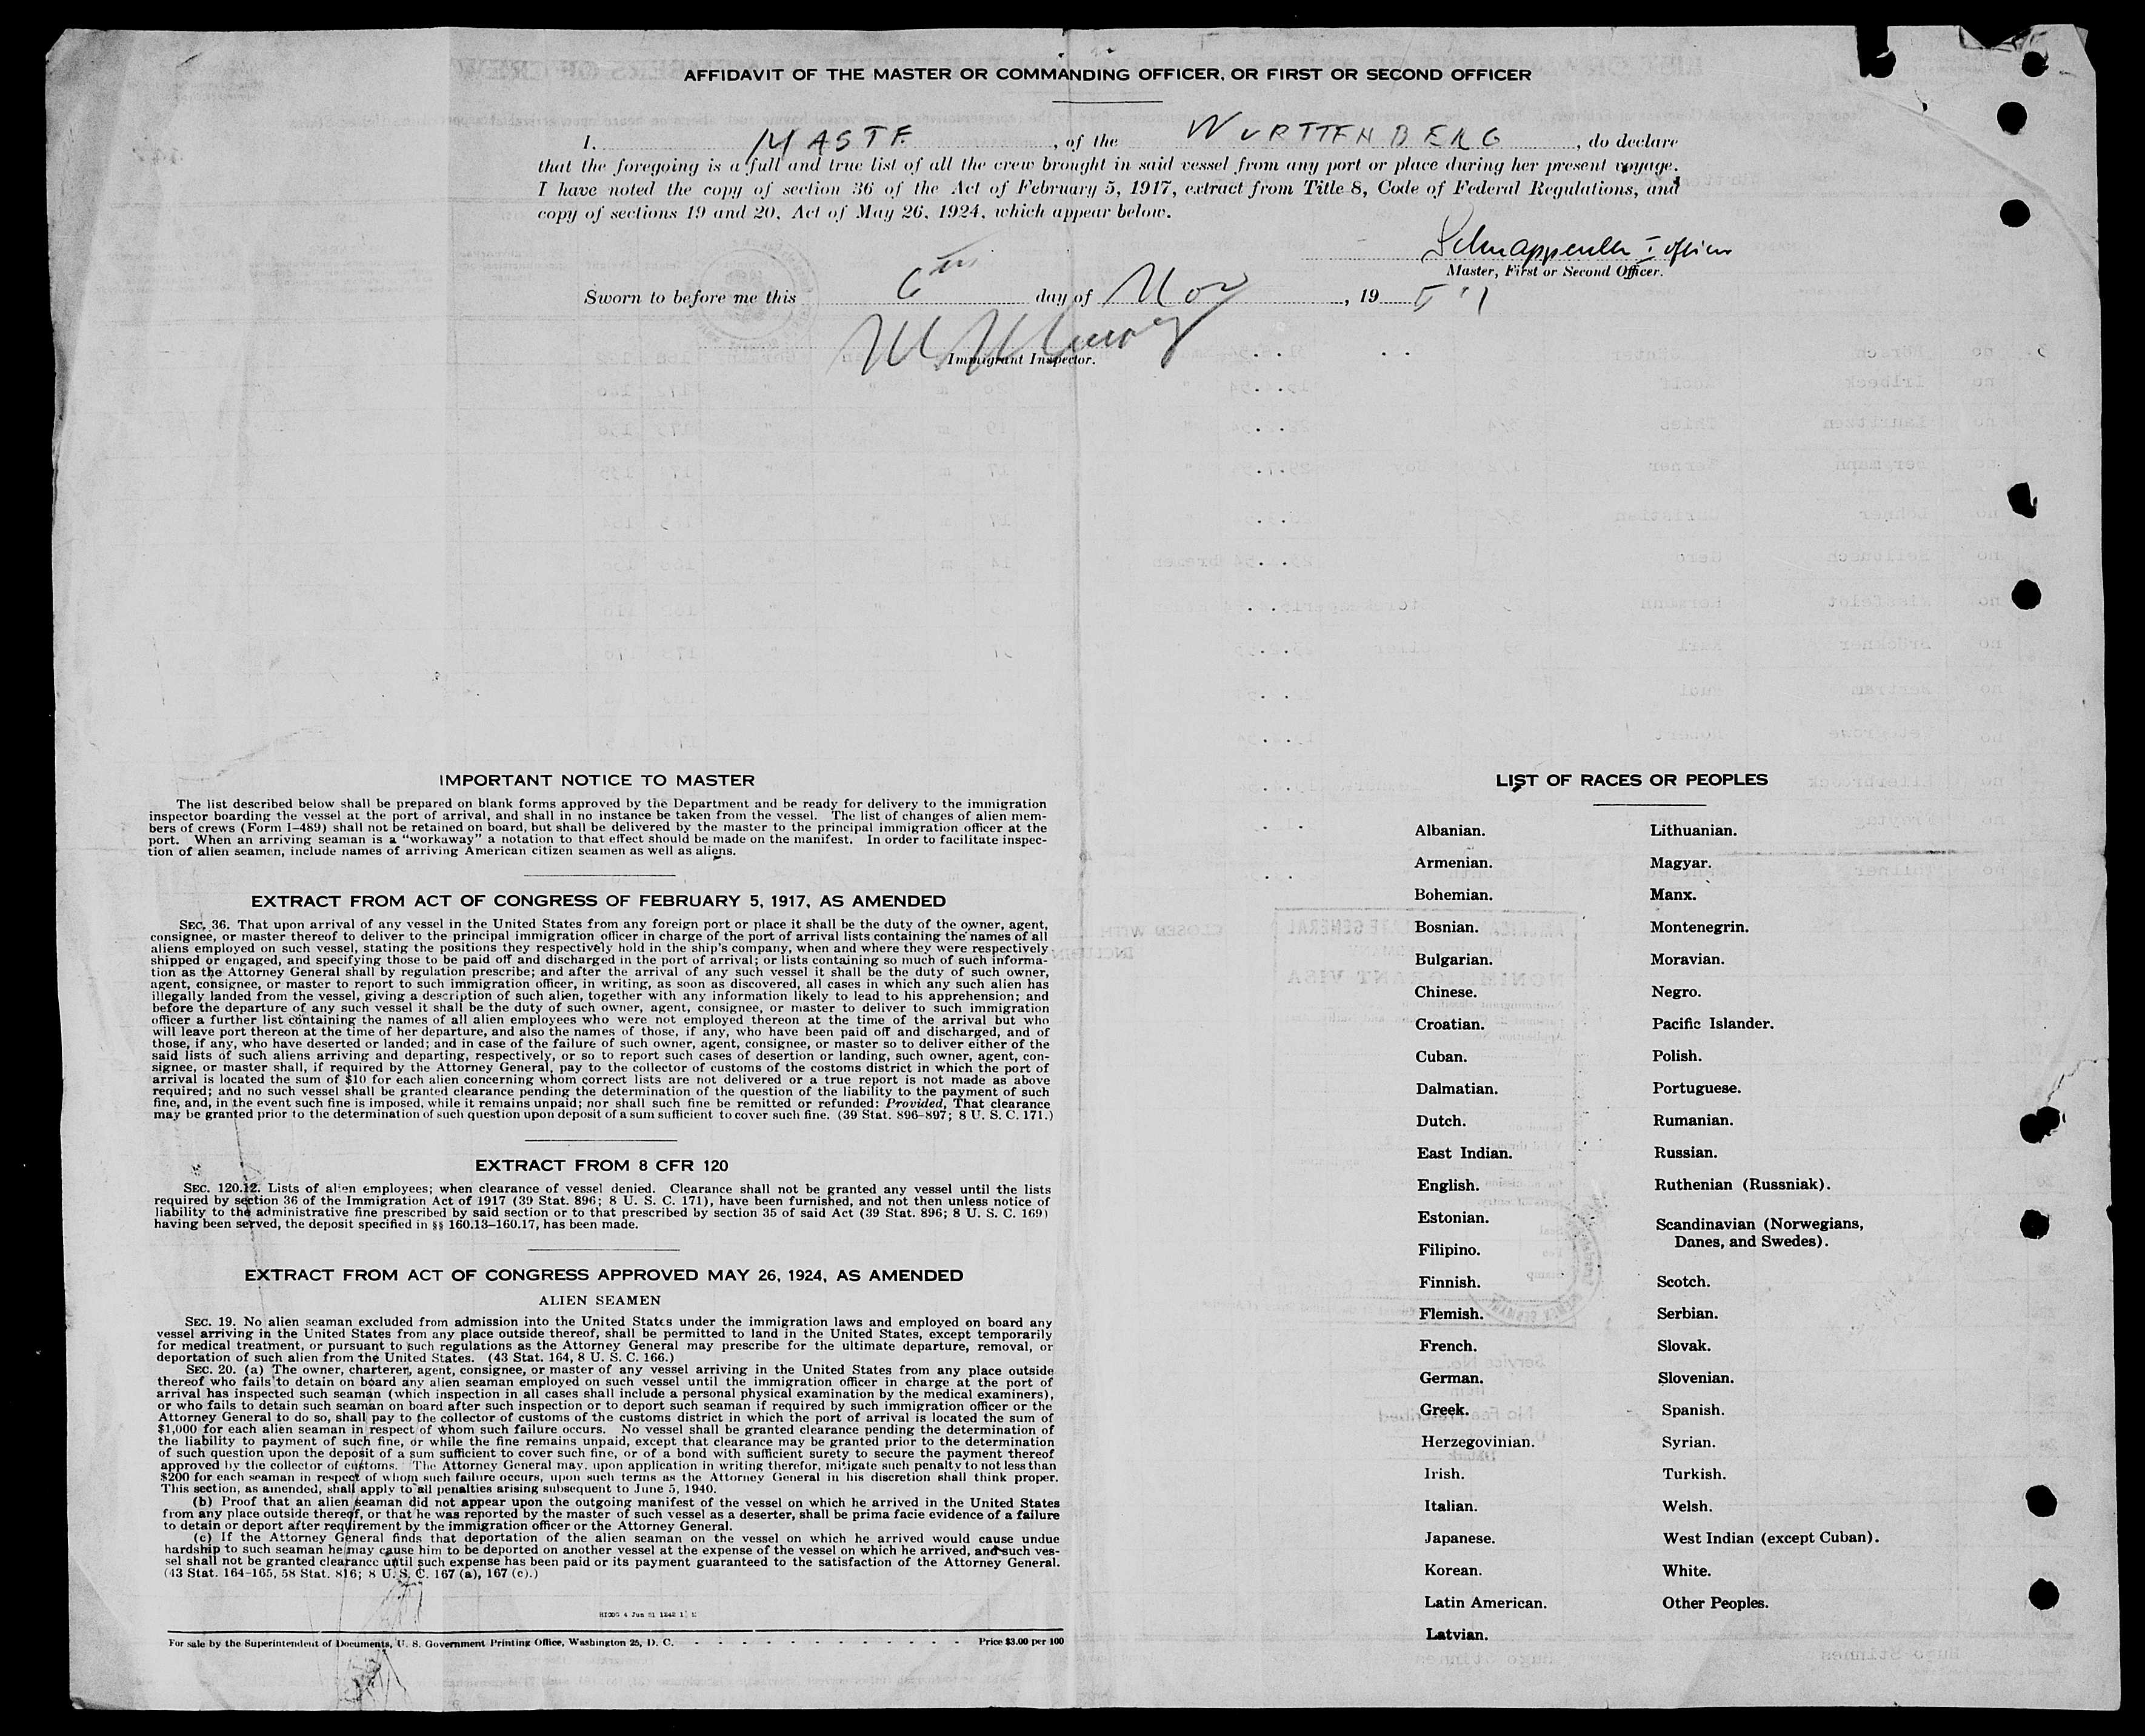 AFFIDAVIT OF THE MASTER OR COMMANDING OFFICER, OR FIRST OR SECOND OFFICER
I, MASTE, of the WURTTENBERG, do declare
that the foregoing is a full and true list of all the crew brought in said vessel from any port or place during her present voyage.
I have noted the copy of section 36 of the Act of February 5, 1917, extract from Title 8, Code of Federal Regulations, and
copy of sections 19 and 20, Act of May 26, 1924, which appear below.
I officer
Master, First or Second Officer.
Sworn to before me this 6th day of Nov, 19
Immigrant Inspector.
IMPORTANT NOTICE TO MASTER
The list described below shall be prepared on blank forms approved by the Department and be ready for delivery to the immigration
inspector boarding the vessel at the port of arrival, and shall in no instance be taken from the vessel. The list of changes of alien mem-
bers of crews (Form I–489) shall not be retained on board, but shall be delivered by the master to the principal immigration officer at the
port. When an arriving seaman is a "workaway" a notation to that effect should be made on the manifest. In order to facilitate inspec-
tion of alien seamen, include names of arriving American citizen seamen as well as aliens.
EXTRACT FROM ACT OF CONGRESS OF FEBRUARY 5, 1917, AS AMENDED
SEC. 36. That upon arrival of any vessel in the United States from any foreign port or place it shall be the duty of the owner, agent,
consignee, or master thereof to deliver to the principal immigration officer in charge of the port of arrival lists containing the names of all
aliens employed on such vessel, stating the positions they respectively hold in the ship's company, when and where they were respectively
shipped or engaged, and specifying those to be paid off and discharged in the port of arrival; or lists containing so much of such informa-
tion as the Attorney General shall by regulation prescribe; and after the arrival of any such vessel it shall be the duty of such owner,
agent, consignee, or master to report to such immigration officer, in writing, as soon as discovered, all cases in which any such alien has
illegally landed from the vessel, giving a description of such alien, together with any information likely to lead to his apprehension; and
before the departure of any such vessel it shall be the duty of such owner, agent, consignee, or master to deliver to such immigration
officer a further list containing the names of all alien employees who were not employed thereon at the time of the arrival but who
will leave port thereon at the time of her departure, and also the names of those, if any, who have been paid off and discharged, and of
those, if any, who have deserted or landed; and in case of the failure of such owner, agent, consignee, or master so to deliver either of the
said lists of such aliens arriving and departing, respectively, or so to report such cases of desertion or landing, such owner, agent, con-
signee, or master shall, if required by the Attorney General, pay to the collector of customs of the costoms district in which the port of
arrival is located the sum of $10 for each alien concerning whom correct lists are not delivered or a true report is not made as above
required; and no such vessel shall be granted clearance pending the determination of the question of the liability to the payment of such
fine, and, in the event such fine is imposed, while it remains unpaid; nor shall such fine be remitted or refunded: Provided, That clearance
may be granted prior to the determination of such question upon deposit of a sum sufficient to cover such fine. (39 Stat. 896–897; 8 U. S. C. 171.)
EXTRACT FROM 8 CFR 120
SEC. 120.12. Lists of alien employees; when clearance of vessel denied. Clearance shall not be granted any vessel until the lists
required by section 36 of the Immigration Act of 1917 (39 Stat. 896; 8 U. S. C. 171), have been furnished, and not then unless notice of
liability to the administrative fine prescribed by said section or to that prescribed by section 35 of said Act (39 Stat. 896; 8 U. S. C. 169)
having been served, the deposit specified in §§ 160.13–160.17, has been made.
EXTRACT FROM ACT OF CONGRESS APPROVED MAY 26, 1924, AS AMENDED
ALIEN SEAMEN
SEC. 19. No alien seaman excluded from admission into the United States under the immigration laws and employed on board any
vessel arriving in the United States from any place outside thereof, shall be permitted to land in the United States, except temporarily
for medical treatment, or pursuant to such regulations as the Attorney General may prescribe for the ultimate departure, removal, or
deportation of such alien from the United States. (43 Stat. 164, 8 U. S. C. 166.)
SEC. 20. (a) The owner, charterer, agent, consignee, or master of any vessel arriving in the United States from any place outside
thereof who fails to detain on board any alien seaman employed on such vessel until the immigration officer in charge at the port of
arrival has inspected such seaman (which inspection in all cases shall include a personal physical examination by the medical examiners),
or who fails to detain such seaman on board after such inspection or to deport such seaman if required by such immigration officer or the
Attorney General to do so, shall pay to the collector of customs of the customs district in which the port of arrival is located the sum of
$1,000 for each alien seaman in respect of whom such failure occurs. No vessel shall be granted clearance pending the determination of
the liability to payment of such fine, or while the fine remains unpaid, except that clearance may be granted prior to the determination
of such question upon the deposit of a sum sufficient to cover such fine, or of a bond with sufficient surety to secure the payment thereof
approved by the collector of customs. The Attorney General may, upon application in writing therefor, mitigate such penalty to not less than
$200 for each seaman in respect of whom such failure occurs, upon such terms as the Attorney General in his discretion shall think proper.
This section, as amended, shall apply to all penalties arising subsequent to June 5, 1940.
(b) Proof that an alien seaman did not appear upon the outgoing manifest of the vessel on which he arrived in the United States
from any place outside thereof, or that he was reported by the master of such vessel as a deserter, shall be prima facie evidence of a failure
to detain or deport after requirement by the immigration officer or the Attorney General.
(c) If the Attorney General finds that deportation of the alien seaman on the vessel on which he arrived would cause undue
hardship to such seaman he may cause him to be deported on another vessel at the expense of the vessel on which he arrived, and such ves-
sel shall not be granted clearance until such expense has been paid or its payment guaranteed to the satisfaction of the Attorney General.
(43 Stat. 164–165, 58 Stat. 816; 8 U. S. C. 167 (a), 167 (c).)
For sale by the Superintendent of Documents, U. S. Government Printing Office, Washington 25, D. C. - - - - - - - - - - - Price $3.00 per 100
LIST OF RACES OR PEOPLES
Albanian.
Armenian.
Bohemian.
Bosnian.
Bulgarian.
Chinese.
Croatian.
Cuban.
Dalmatian.
Dutch.
East Indian.
English.
Estonian.
Filipino.
Finnish.
Flemish.
French.
German.
Greek.
Herzegovinian.
Irish.
Italian.
Japanese.
Korean.
Latin American.
Latvian.
Lithuanian.
Magyar.
Manx.
Montenegrin.
Moravian.
Negro.
Pacific Islander.
Polish.
Portuguese.
Rumanian.
Russian.
Ruthenian (Russniak).
Scandinavian (Norwegians,
Danes, and Swedes).
Scotch.
Serbian.
Slovak.
Slovenian.
Spanish.
Syrian.
Turkish.
Welsh.
West Indian (except Cuban).
White.
Other Peoples.